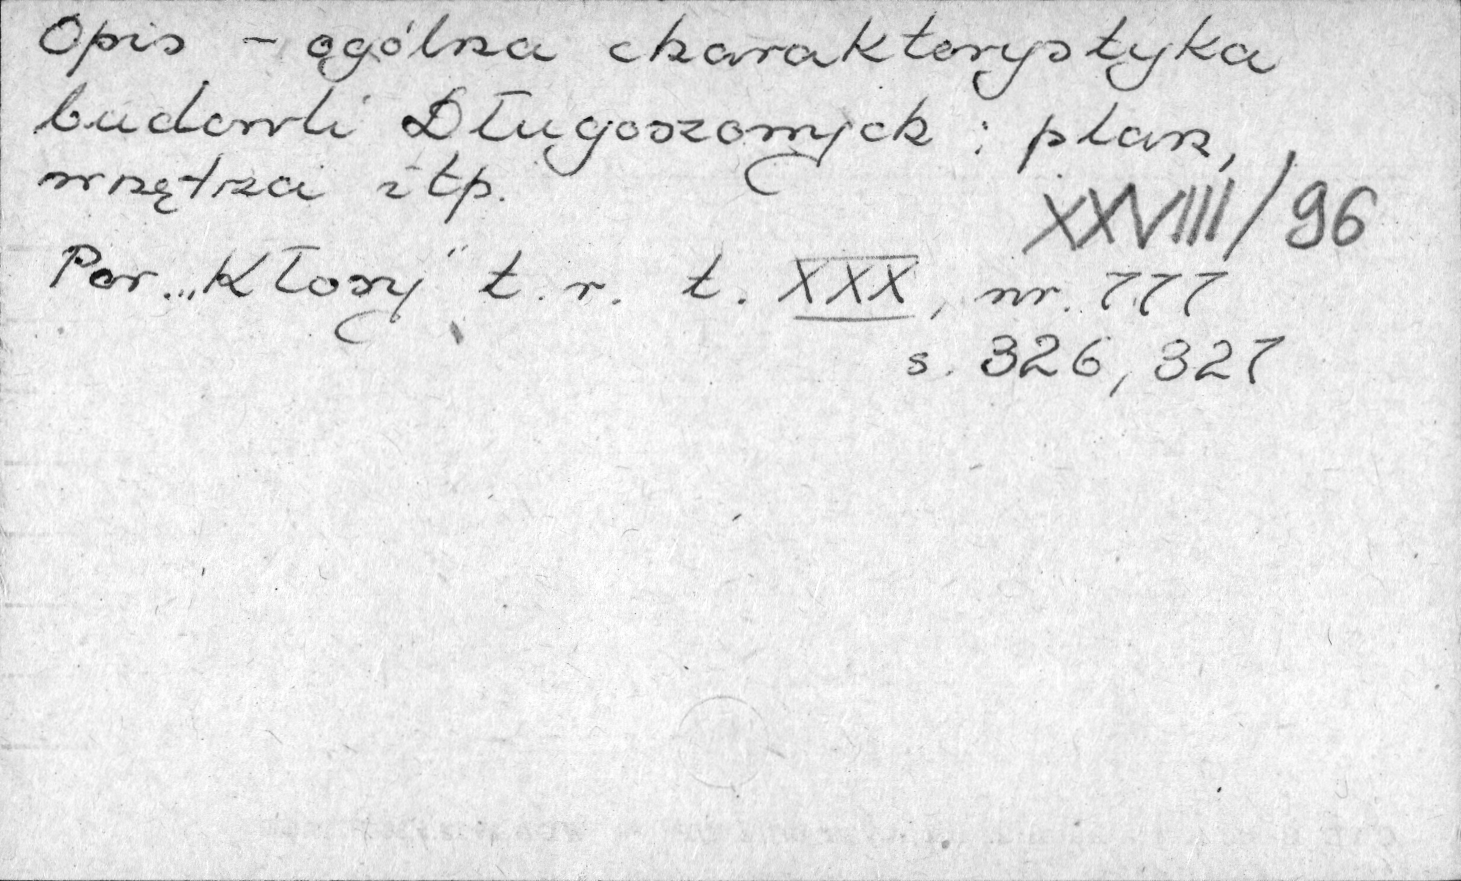 Opis - ogólna charakterystyka
budowli Długoszowych : plan,
wnętrza itp.
XXVIII/96
Por. „Kłosy" t. r. t. XXX, nr. 777
s. 326, 327